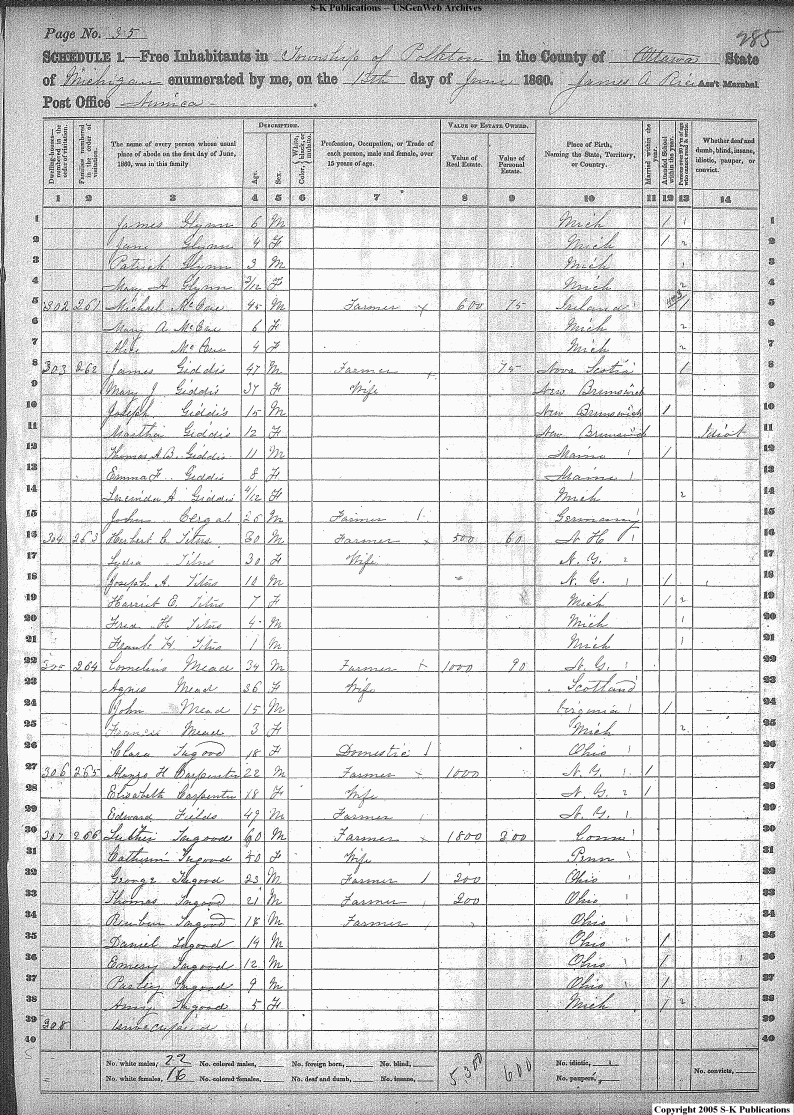 S-K Publications – USGenWeb Archives
Page No. 35
285
SCHEDULE 1.—Free Inhabitants in Township of Polkton in the County of Ottawa State
of Michigan enumerated by me, on the 13th day of June 1860. James A Rice Ass't Marshal.
Post Office Nunica
Dwelling-houses—numbered in the order of visitation. Families numbered in the order of visitation. The name of every person whose usual place of abode on the first day of June, 1860, was in this family. DESCRIPTION. Age. Sex. Color, White, black, or mulatto. Profession, Occupation, or Trade of each person, male and female, over 15 years of age. VALUE OF ESTATE OWNED. Value of Real Estate. Value of Personal Estate. Place of Birth, Naming the State, Territory, or Country. Married within the year. Attended School within the year. Whether deaf and dumb, blind, insane, idiotic, pauper, or convict.
1 2 3 4 5 6 7 8 9 10 11 12 13 14
1 James Glynn 6 M Mich / 1 1
2 Jane Glynn 4 F Mich / 2 2
3 Patrick Glynn 3 M Mich 1 3
4 Mary A Glynn 3/12 F Mich 2 4
5 302 261 Michael McCue 45 M Farmer 600 75 Ireland 1 5
6 Mary A McCue 6 F Mich 2 6
7 Alice McCue 4 F Mich 2 7
8 303 262 James Giddis 47 M Farmer 75 Nova Scotia 1 8
9 Mary J Giddis 37 F Wife New Brunswick 9
10 Joseph Giddis 15 M New Brunswick 1 10
11 Martha Giddis 12 F New Brunswick Idiot 11
12 Thomas A B Giddis 11 M Maine 1 12
13 Emma F Giddis 8 F Maine 13
14 Lucinda A Giddis 4/12 F Mich 2 14
15 John 26 M Farmer Germany 15
16 304 263 Herbert C Titus 30 M Farmer 500 60 N. H. 16
17 Lydia Titus 30 F Wife N. Y. 17
18 Joseph A. Titus 10 M N. Y. 1 18
19 Harriet E. Titus 7 F Mich 1 2 19
20 Fred H Titus 4 M Mich 1 20
21 Frank H. Titus 1 M Mich 1 21
22 305 264 Cornelius Mead 34 M Farmer 1000 90 N. Y. 22
23 Agnes Mead 36 F Wife Scotland 23
24 John Mead 15 M Virginia 1 24
25 Frances Mead 3 F Mich 2 25
26 Clara Ingood 18 F Domestic Ohio 26
27 306 265 Alonzo H Carpenter 22 M Farmer 1000 N. Y. 1 27
28 Elizabeth Carpenter 18 F Wife N. Y. 1 28
29 Edward Fields 49 M Farmer N. Y. 29
30 307 266 Luther Ingood 60 M Farmer 1800 300 Conn 30
31 Catherine Ingood 50 F Wife Penn 31
32 George Ingood 23 M Farmer 200 Ohio 32
33 Thomas Ingood 21 M Farmer 200 Ohio 33
34 Reuben Ingood 18 M Farmer Ohio 34
35 Daniel Ingood 14 M Ohio 1 35
36 Emery Ingood 12 M Ohio 1 36
37 Ingood 9 M Ohio 1 37
38 Amy Ingood 5 F Mich 1 2 38
39 308 Unoccupied 39
40 40
No. white males, 22 No. colored males, No. foreign born, No. blind, 5300 600 No. idiotic, No. convicts,
No. white females, 16 No. colored females, No. deaf and dumb, No. insane, No. paupers,
Copyright 2005 S-K Publications